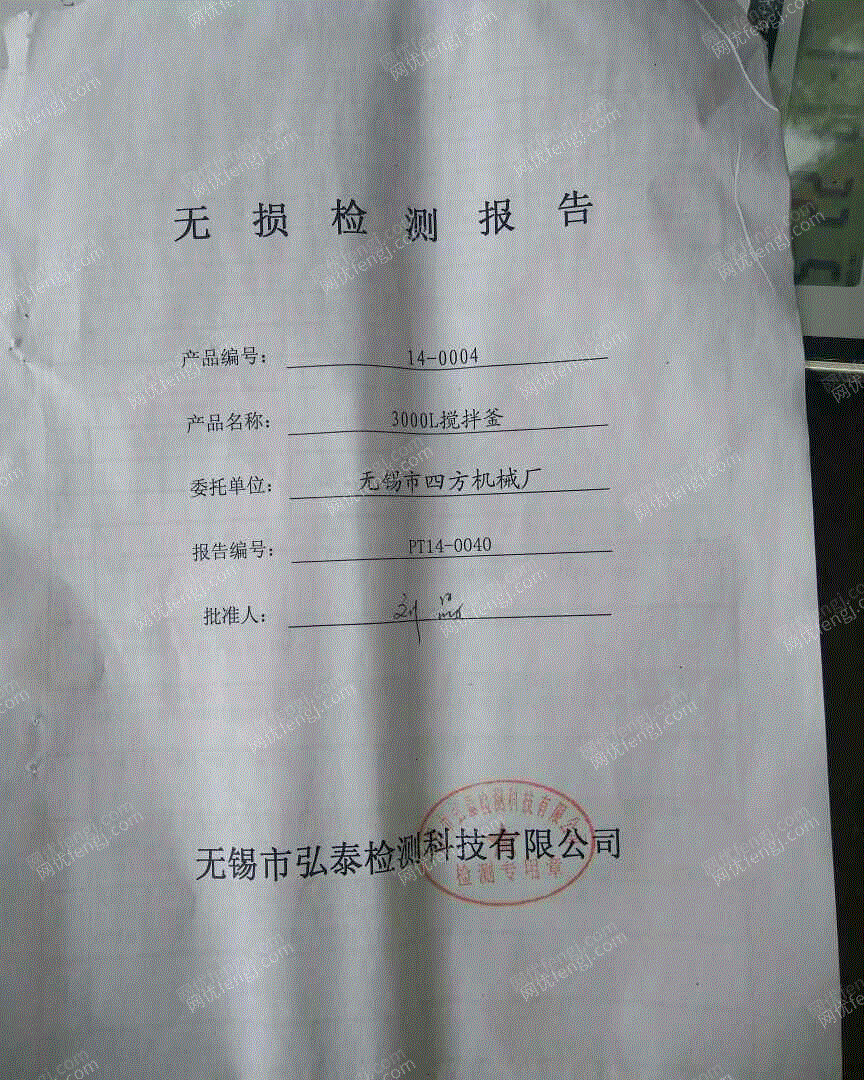 无损检测报告
产品编号： 14-0004
产品名称： 3000L搅拌釜
委托单位： 无锡市四方机械厂
报告编号： PT14-0040
批准人： 刘
无锡市弘泰检测科技有限公司
市弘泰检测科技有限公
检测专用章
网优fengj.com